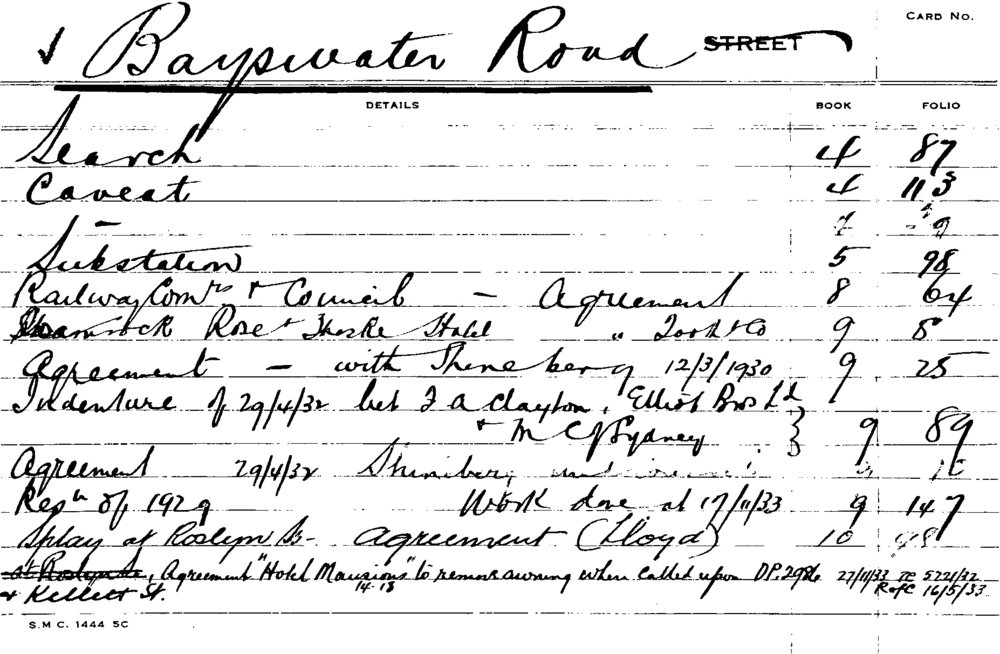 CARD No.
Bayswater Road STREET
DETAILS BOOK FOLIO
Search 4 87
Caveat 4 113
Substation 5 98
Railway Comrs & Council - Agreement 8 64
Shamrock Rose & Thistle Hotel " Tooth & Co 9 8
Agreement - with Shineberg 12/3/1930 9 25
Indenture of 29/4/32 bet F A Clayton, Elliot Bros Ld 9
& M C of Sydney 9 89
Agreement 29/4/32
Resn of 1929 Work done at 17/11/33 9 147
Splay at Roslyn St - Agreement (Lloyd) 10 98
at Roslyn St, Agreement "Hotel Mansions" to remove awning when called upon DP. 2986 27/11/33 TC 5221/32
& Kellett St. 14.18 R of C 16/5/33
S.M C. 1444 5C